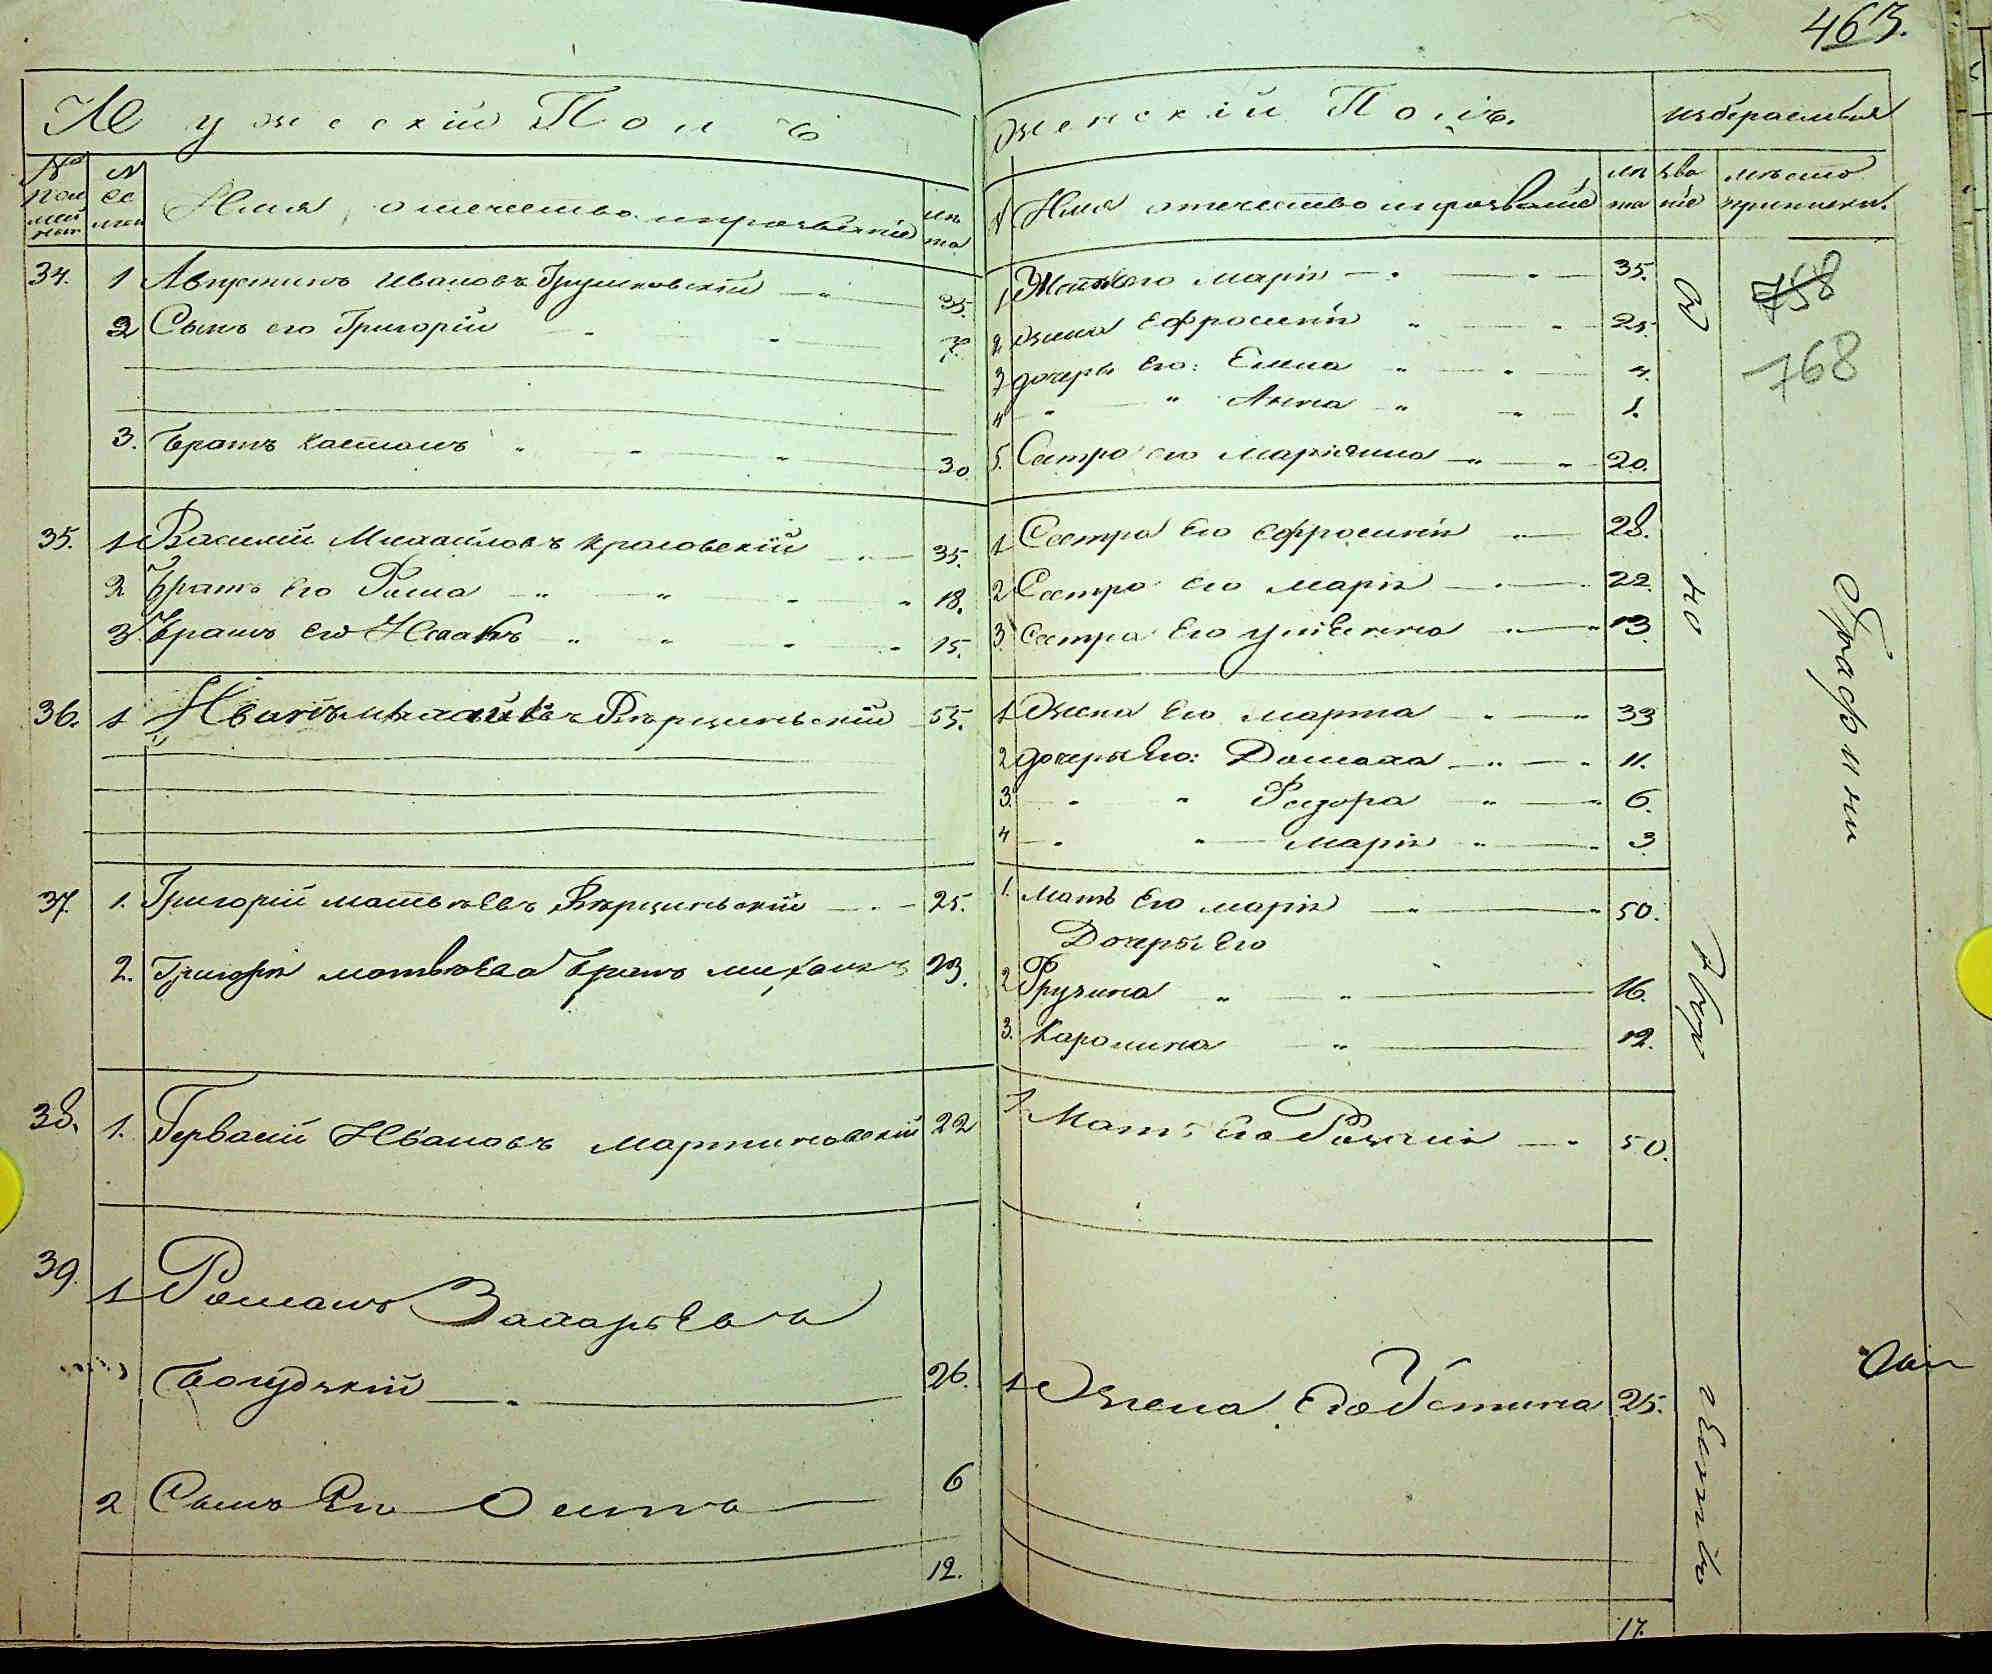 463.
Мужескій Полъ
№ по ймен
№ се мьи
Имя, отечество и прозваніе
лѣта
34. 1 Августинъ Ивановъ Грушковскій 35.
2 Сынъ его Григорій 7.
3. Братъ Каетанъ 30
35. 1 Василий Михайловъ Краговскій 35.
2 Братъ Его Фома 18.
3 Братъ Его Исаакъ 15.
36. 1 Иванъ Михайловъ Вѣрцинскій 55.
37. 1. Григорій Матвѣевъ Вѣрциньскій 25.
2. Григорія Матвѣева Братъ Михаилъ 23.
38. 1. Герваий Ивановъ Мартиновскій 22
39. 1 Романъ Захарьевъ
26.
2 Сынъ Его Осипъ 6
12.
Женскій Полъ.
избераемыя
№ Имя отечество и прозваніе
лѣта
званіе
мѣсто приписки.
1 его Марія 35.
2 жена Ефросинія 25.
3 дочери Его: Елена 4.
4 " " Анна 1.
5. Сестра его Маріянна 20.
1 Сестра Его Ефросинія 28.
2 Сестра Его Марія 22.
3 Сестра Его Устинна 13.
1 Жена Его Марта 33
2 дочери Его: Домаха 11.
3. " " Физора 6.
4 " " Марія 3
1. Мать Его Марія 50.
Дочери Его
2 Фрузина 16.
3. Каролина 12.
1. Мать Его Розалія 50.
1 Жена Его Устина 25.
17.
758
768